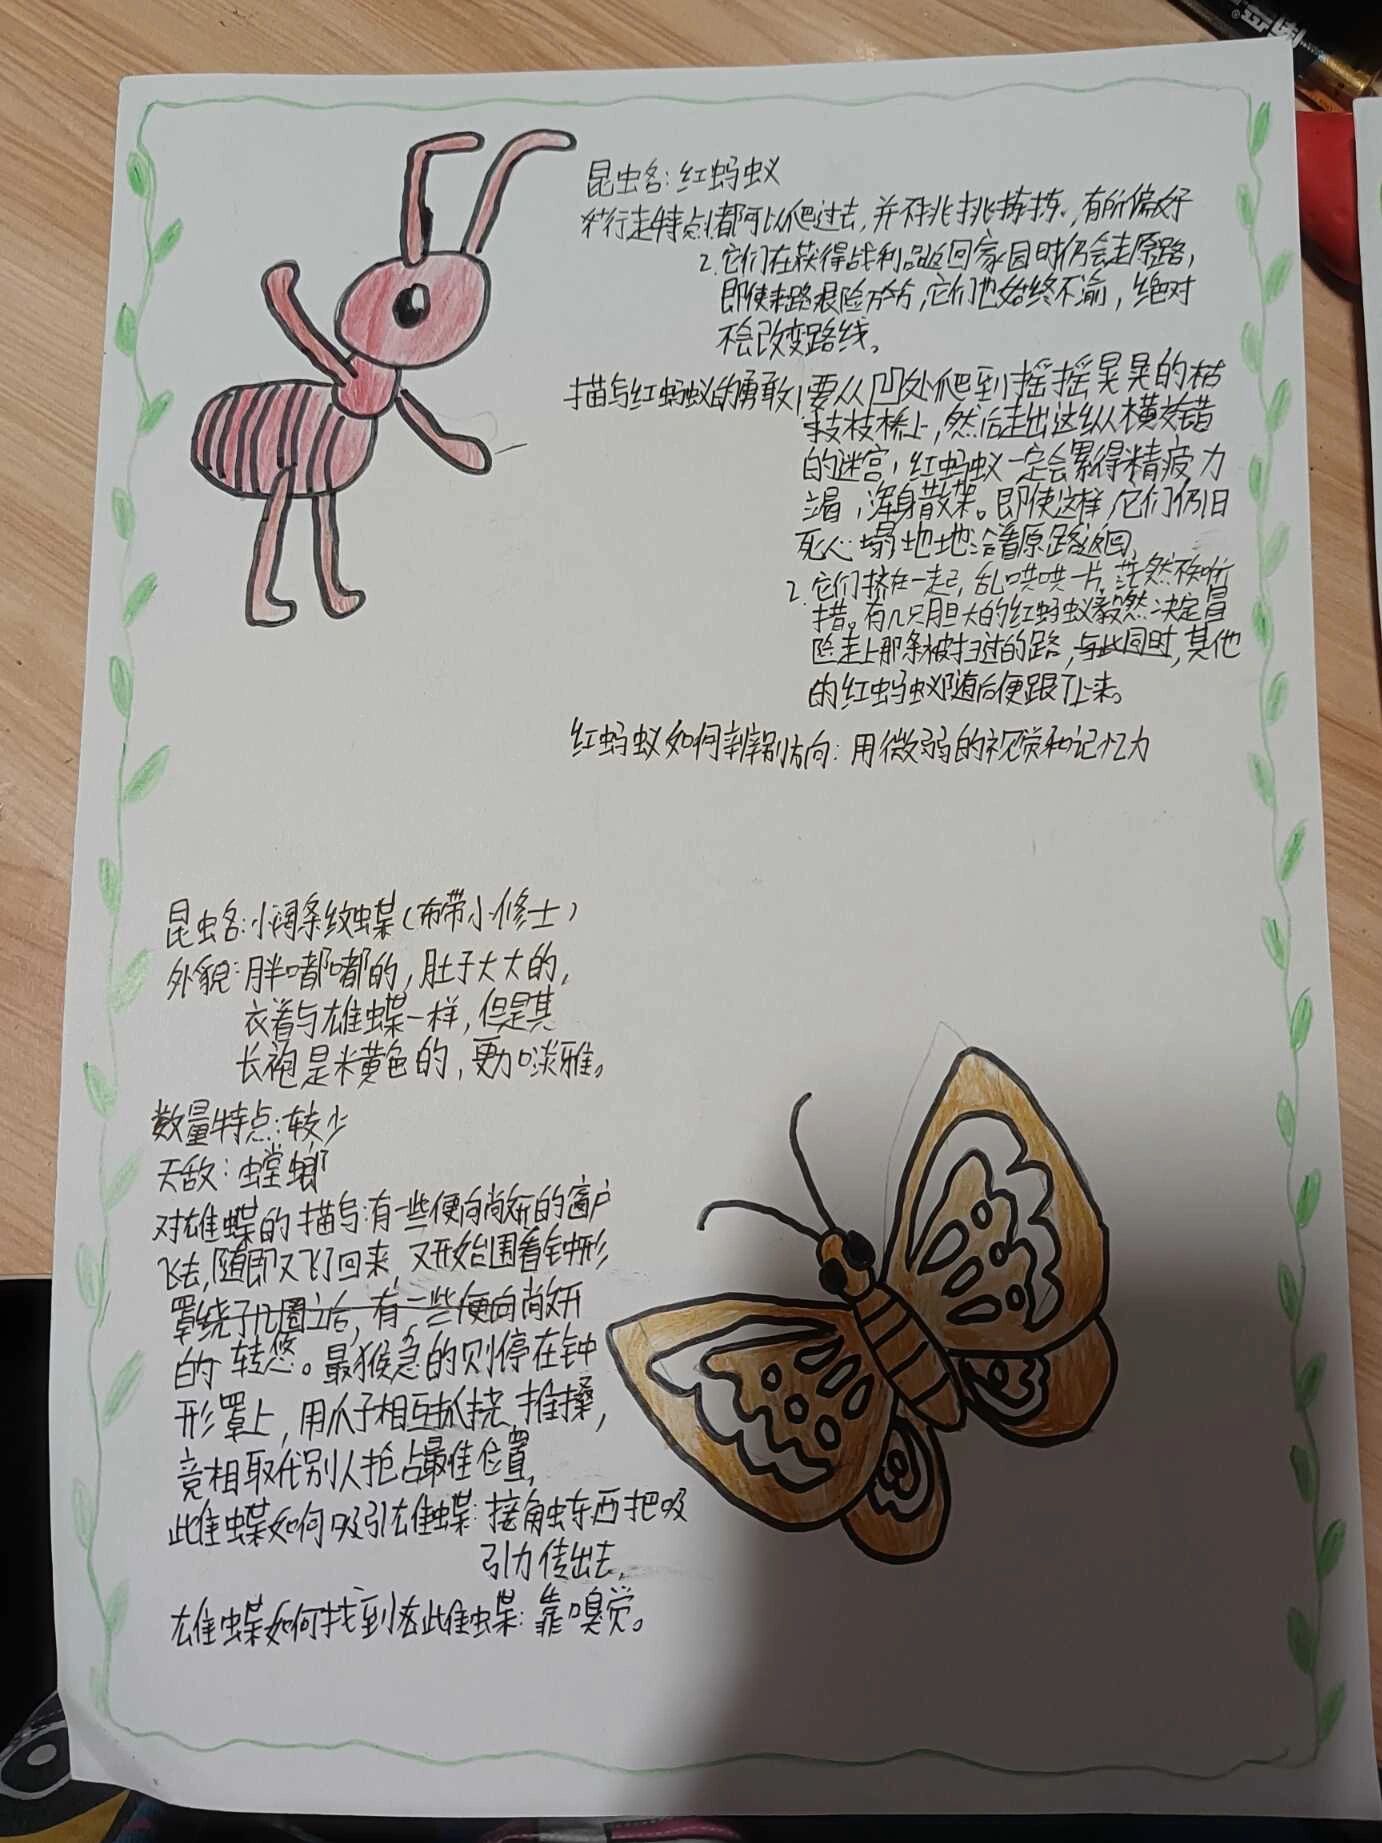 昆虫名:红蚂蚁
行走特点1都可以爬过去,并不挑挑拣拣,有所偏好
2.它们在获得战利品返回家园时仍会走原路,
即使来路艰险万分,它们也始终不渝,绝对
不会改变路线。
描写红蚂蚁的勇敢1要从凹处爬到摇摇晃晃的枯
枝枝桥上,然后走出这纵横交错
的迷宫,红蚂蚁一定会累得精疲力
竭,浑身散架。即使这样,它们仍旧
死心塌地地沿着原路返回,
2.它们挤在一起,乱哄哄一片,茫然不知所
措。有几只胆大的红蚂蚁毅然决定冒
险走上那条被扫过的路,与此同时,其他
的红蚂蚁随后便跟了上来。
红蚂蚁如何辨别方向:用微弱的视觉和记忆力
昆虫名:小阔条纹蝶(布带小修士)
外貌:胖嘟嘟的,肚子大大的,
衣着与雄蝶一样,但是其
长袍是米黄色的,更加淡雅。
数量特点:较少
天敌:螳螂
对雄蝶的描写:有一些便向尚妍的窗户
飞去,随即又飞了回来,又开始围着钟形
罩绕了几圈立后,有一些便向尚妍
的转悠。最猴急的则停在钟
形罩上,用爪子相互抓挠、推搡,
竞相取代别人抢占最佳位置,
此雌蝶如何吸引雄蝶:接触东西把吸
引力传出去,
雄蝶如何找到此雌蝶:靠嗅觉。